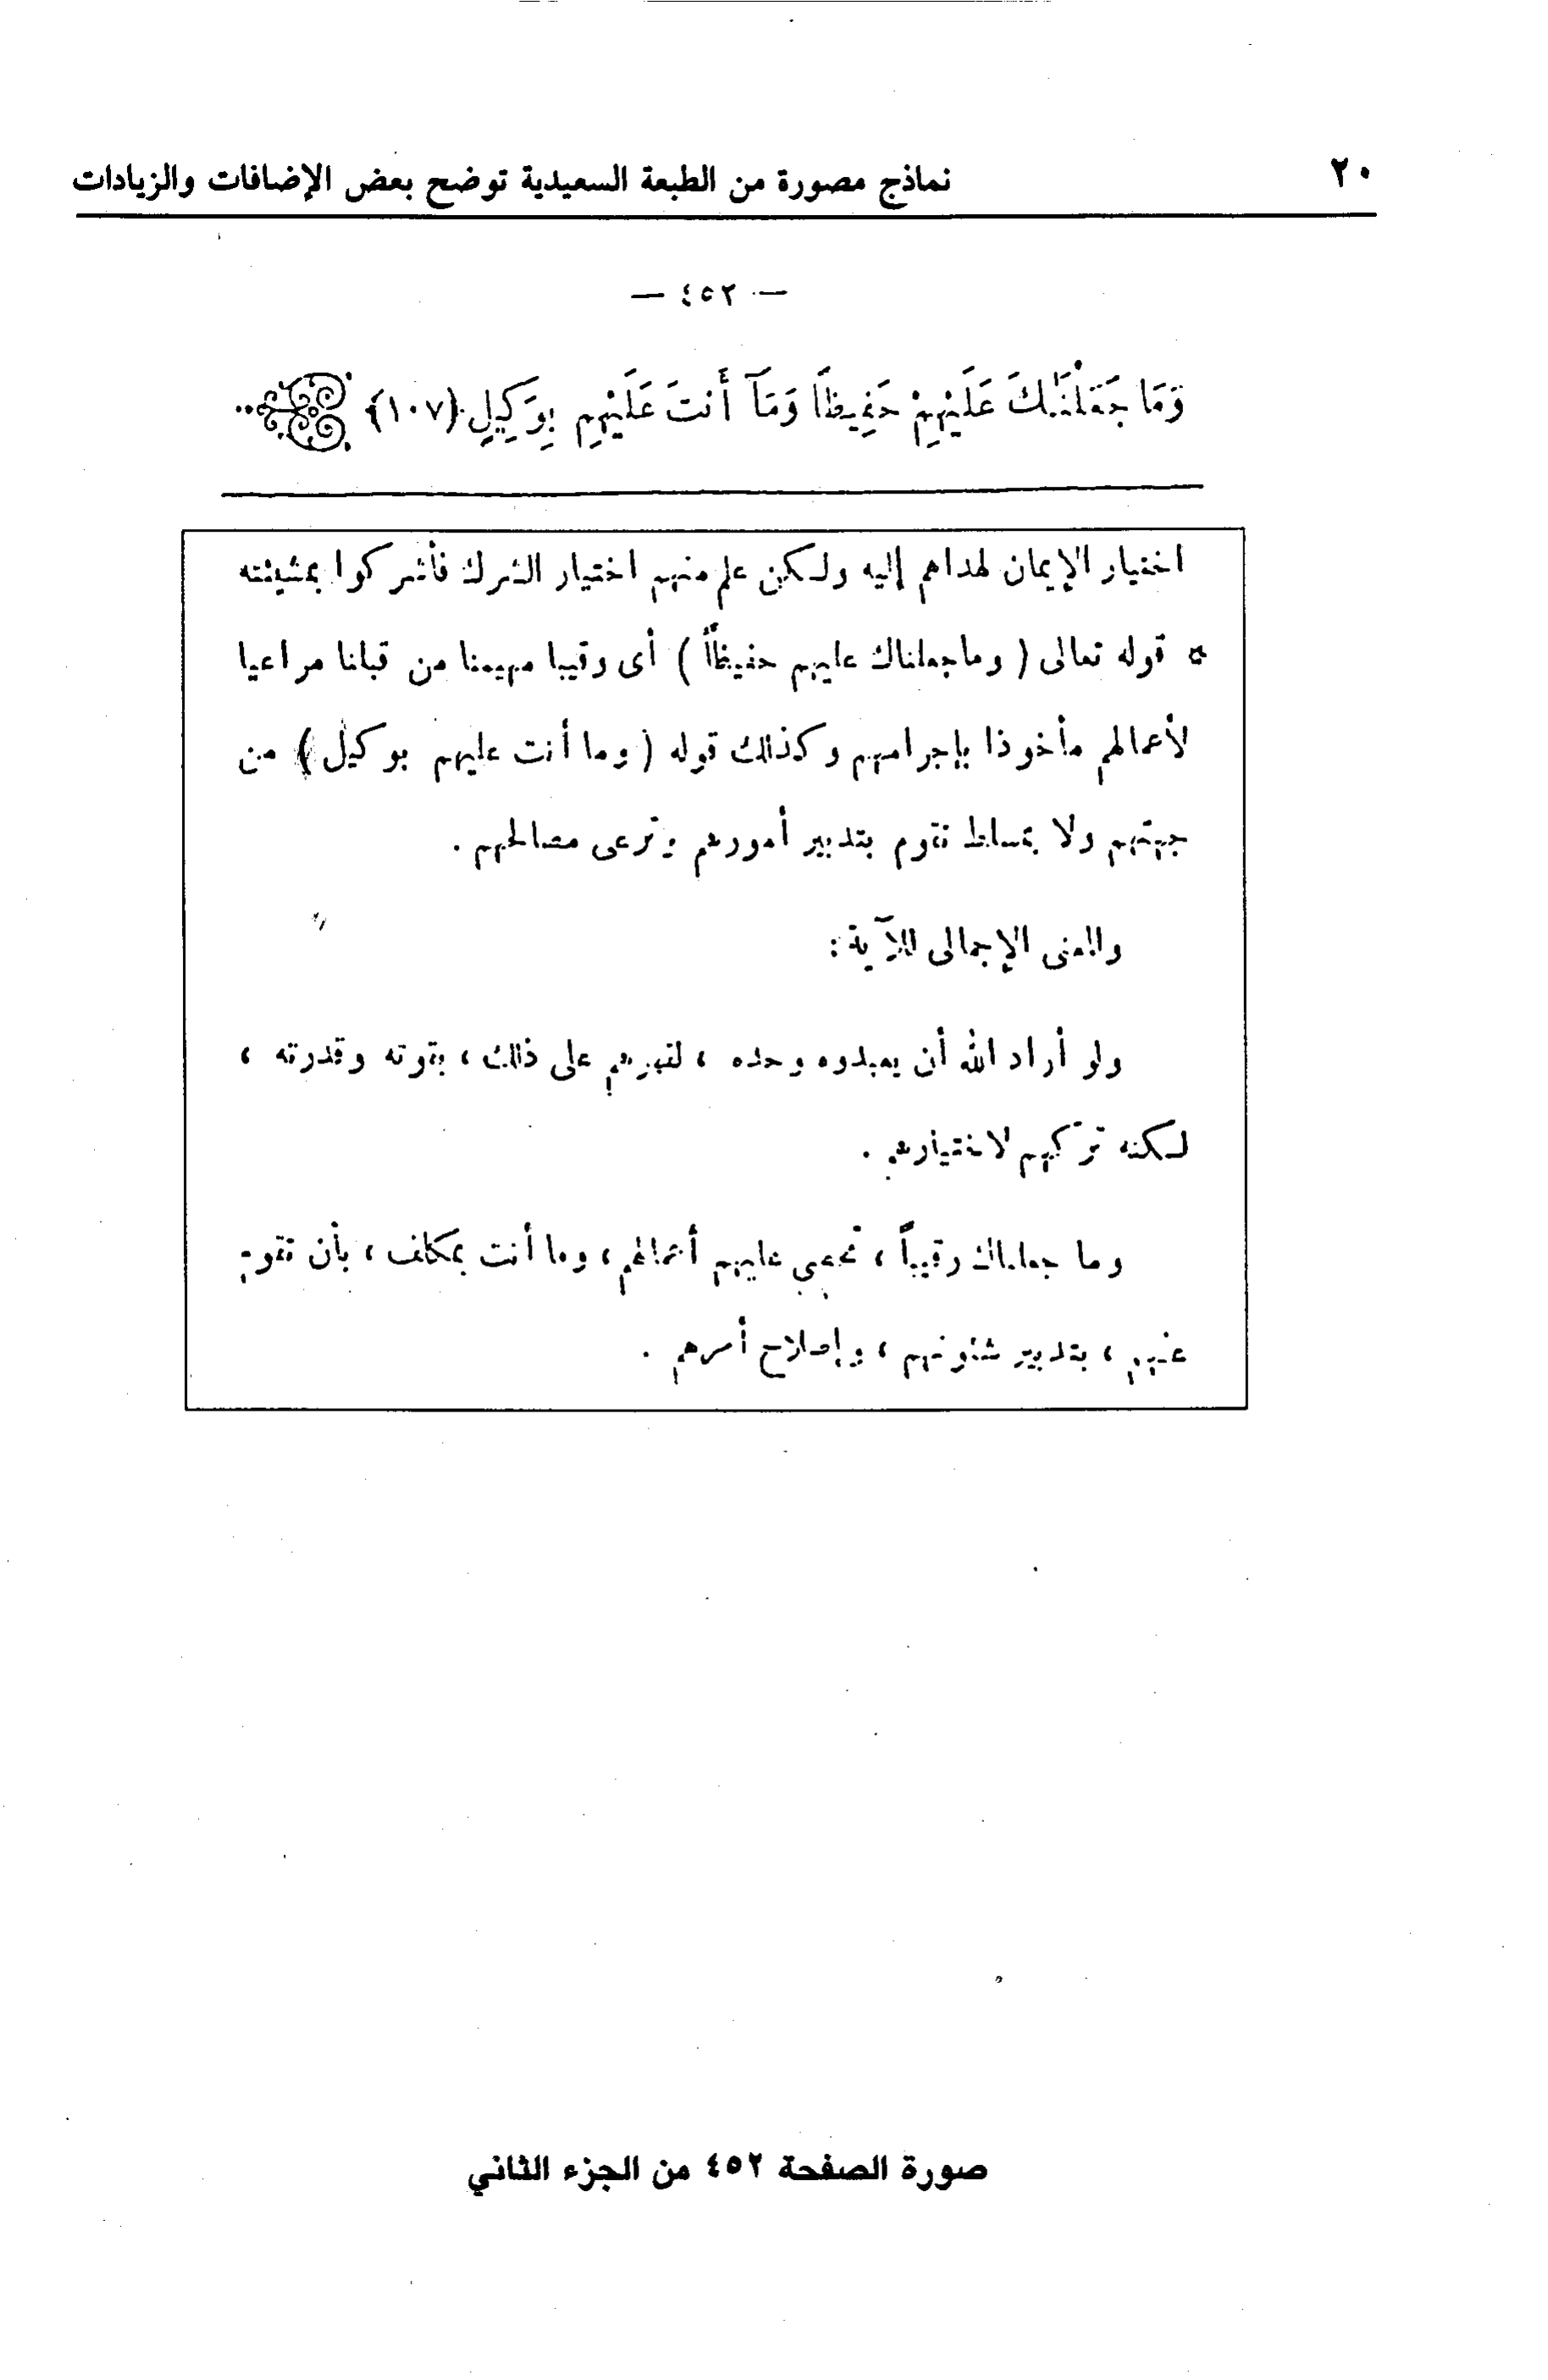 ٢٠
نماذج مصورة من الطبعة السعيدية توضح بعض الإضافات والزيادات
— ٤٥٢ —
وَمَا جَعَلْنَـٰكَ عَلَيْهِمْ حَفِيظًا وَمَآ أَنتَ عَلَيْهِم بِوَكِيلٍ {١٠٧}
اختيار الإيمان لهداهم إليه ولكن علم منهم اختيار الشرك فأشركوا بمشيئته
* قوله تعالى ( وما جعلناك عليهم حفيظاً ) أى رقيبا مهيمنا من قبلنا مراعيا
لأعمالهم مأخوذا بإجرامهم وكذلك قوله ( وما أنت عليهم بوكيل ) من
جهتهم ولا بمسلط تقوم بتدبير أمورهم وترعى مصالحهم .
والمعنى الإجمالى للآية :
ولو أراد الله أن يعبدوه وحده ، لقهرهم على ذلك ، بقوته وقدرته ،
لكنه تركهم لاختيارهم .
وما جعلناك رقيباً ، تحصى عليهم أعمالهم ، وما أنت بمكلف ، بأن تقوم
عنهم ، بتدبير شئونهم ، وإصلاح أمرهم .
صورة الصفحة ٤٥٢ من الجزء الثاني